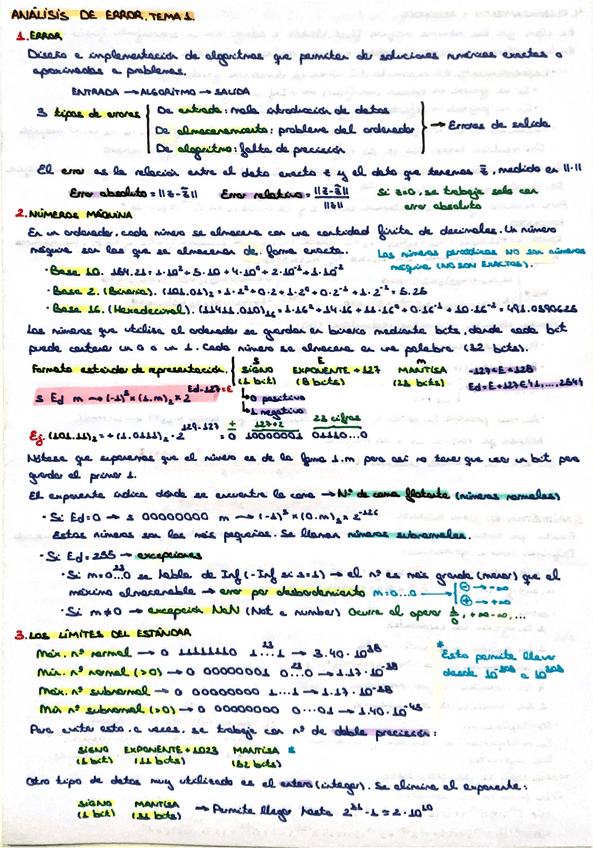 ANÁLISIS DE ERROR. TEMA 1.
1. ERROR
Diseño e implementación de algoritmos que permiten dar soluciones numéricas exactas o
aproximadas a problemas.
ENTRADA → ALGORITMO → SALIDA
3 tipos de errores
De entrada: mala introducción de datos
De almacenamiento: problema del ordenador
De algoritmo: falta de precisión
→ Errores de salida
El error es la relación entre el dato exacto z y el dato que tenemos z̃, medido en ||·||
Error absoluto = ||z-z̃|| Error relativo = ||z-z̃|| / ||z|| Si z=0, se trabaja solo con
error absoluto
2. NÚMEROS MÁQUINA
En un ordenador, cada número se almacena con una cantidad finita de decimales. Un número
máquina son los que se almacenan de forma exacta.
Los números periódicos NO son números
máquina (NO SON EXACTOS).
· Base 10. 154.21 = 1·10² + 5·10 + 4·10⁰ + 2·10⁻¹ + 1·10⁻²
· Base 2. (Binario). (101.01)₂ = 1·2² + 0·2 + 1·2⁰ + 0·2⁻¹ + 1·2⁻² = 5.25
· Base 16. (Hexadecimal). = 491.0390625
Los números que utiliza el ordenador se guardan en binario mediante bits, donde cada bit
puede contener un 0 o un 1. Cada número se almacena en una palabra (32 bits).
Formato estándar de representación.
S E m
SIGNO EXPONENTE + 127 MANTISA
(1 bit) (8 bits) (23 bits)
-127 = E = 128
Ed = E+127 ∈
s Ed m → (-1)ˢ × (1.m)₂ × 2^(Ed-127=E)
↳ 0 positivo
↳ 1 negativo
Ej. (101.11)₂ = + (1.0111)₂ · 2^(129-127) = 0 10000001 01110...0
+ 127+2 23 cifras
Nótese que suponemos que el número es de la forma 1.m para así no tener que usar un bit para
guardar el primer 1.
El exponente indica dónde se encuentra la coma → Nº de coma flotante (números normales)
· Si Ed=0 → s 00000000 m → (-1)ˢ × (0.m)₂ × 2⁻¹²⁶
Estos números son los más pequeños. Se llaman números subnormales.
· Si Ed = 255 → excepciones
· Si m=0...0 (23) se habla de Inf (-Inf si s=1) → el nº es más grande (menor) que el
máximo almacenable → error por desbordamiento m=0...0 → ⊖ → -∞
⊕ → +∞
· Si m≠0 → excepción NaN (Not a number) Ocurre al operar 1/0, +∞-∞, ...
3. LOS LÍMITES DEL ESTÁNDAR
Máx. nº normal → 0 11111110 1...1 (23) → 3.40·10³⁸
Mín. nº normal (>0) → 0 00000001 0...0 (23) → 1.17·10⁻³⁸
Máx. nº subnormal → 0 00000000 1...1 → 1.17·10⁻³⁸
Mín nº subnormal (>0) → 0 00000000 0...01 → 1.40·10⁻⁴⁵
* Esto permite llevar
desde 10⁻³⁰⁸ a 10³⁰⁸
Para evitar esto, a veces, se trabaja con nº de doble precisión:
SIGNO EXPONENTE + 1023 MANTISA *
(1 bit) (11 bits) (52 bits)
Otro tipo de datos muy utilizado es el entero (integer). Se elimina el exponente:
SIGNO MANTISA
(1 bit) (31 bits)
→ Permite llegar hasta 2³¹ - 1 ≈ 2·10¹⁰